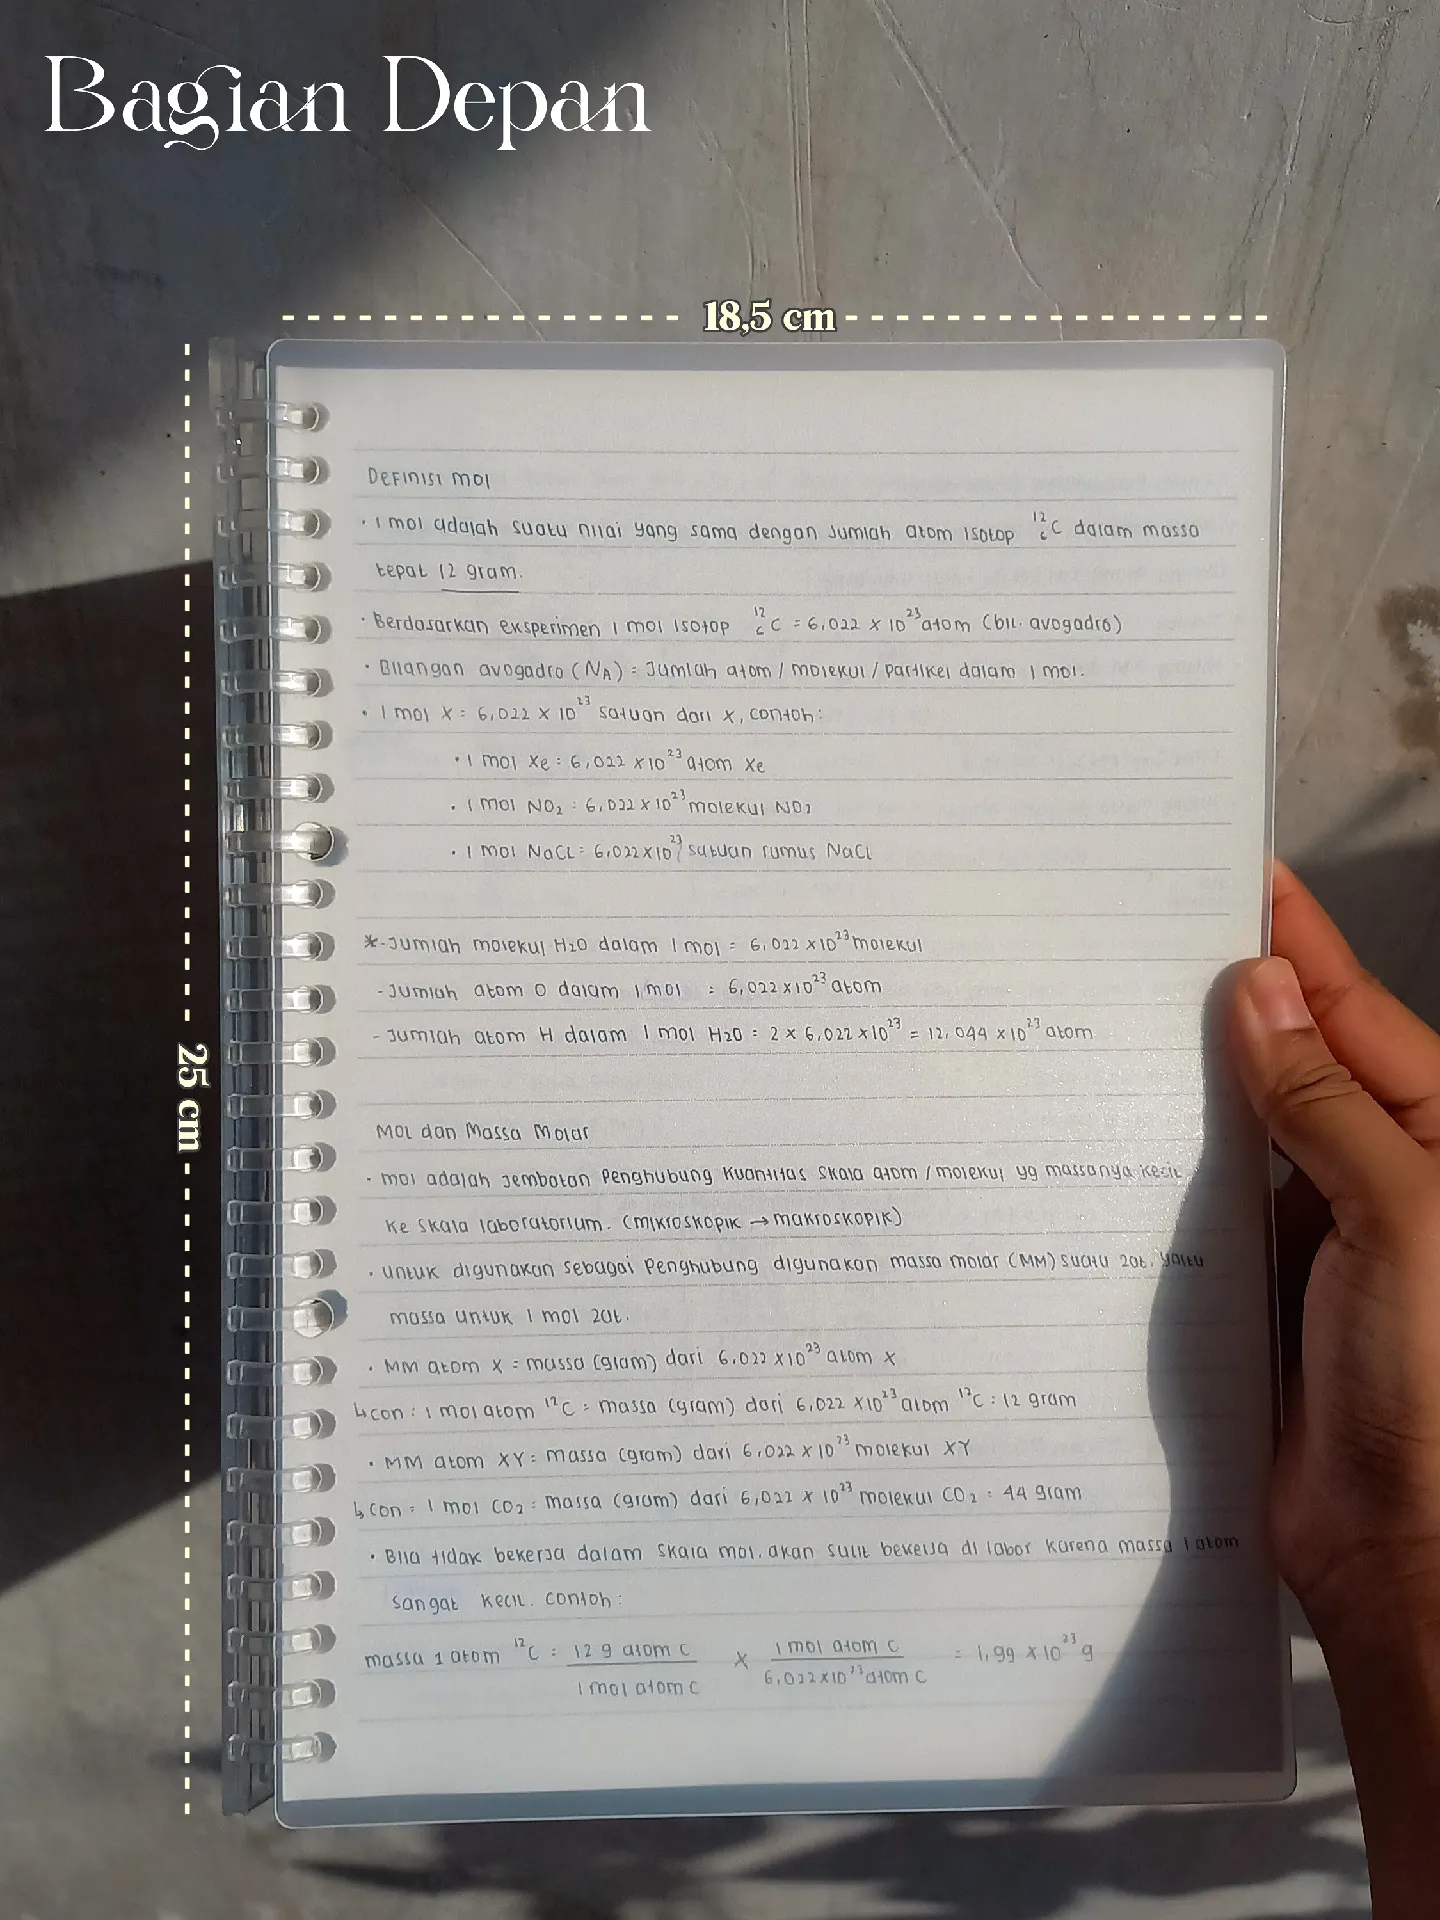 Bagian Depan
18,5 cm
25 cm
Definisi mol
· 1 mol adalah suatu nilai yang sama dengan jumlah atom isotop ¹²₆C dalam massa
tepat 12 gram.
· Berdasarkan eksperimen 1 mol isotop ¹²₆C = 6,022 × 10²³ atom (bil. avogadro)
· Bilangan avogadro (Nᴀ) = Jumlah atom / molekul / partikel dalam 1 mol.
· 1 mol X = 6,022 × 10²³ satuan dari x, contoh:
· 1 mol Xe = 6,022 × 10²³ atom Xe
· 1 mol NO₂ = 6,022 × 10²³ molekul NO₂
· 1 mol NaCl = 6,022 × 10²³ satuan rumus NaCl
* - Jumlah molekul H₂O dalam 1 mol = 6,022 × 10²³ molekul
- Jumlah atom O dalam 1 mol = 6,022 × 10²³ atom
- Jumlah atom H dalam 1 mol H₂O = 2 × 6,022 × 10²³ = 12,044 × 10²³ atom
Mol dan Massa Molar
· mol adalah jembatan Penghubung Kuantitas skala atom / molekul yg massanya kecil
ke skala laboratorium. (mikroskopik → makroskopik)
· untuk digunakan sebagai Penghubung digunakan massa molar (MM) suatu zat, yaitu
massa untuk 1 mol zat.
· MM atom X = massa (gram) dari 6,022 × 10²³ atom X
↳ con : 1 mol atom ¹²C = massa (gram) dari 6,022 × 10²³ atom ¹²C = 12 gram
· MM atom XY = massa (gram) dari 6,022 × 10²³ molekul XY
↳ con = 1 mol CO₂ = massa (gram) dari 6,022 × 10²³ molekul CO₂ = 44 gram
· Bila tidak bekerja dalam skala mol, akan sulit bekerja di labor karena massa 1 atom
sangat kecil. contoh :
massa 1 atom ¹²C = 12 g atom C / 1 mol atom C × 1 mol atom C / 6,022 × 10²³ atom C = 1,99 × 10²³ g